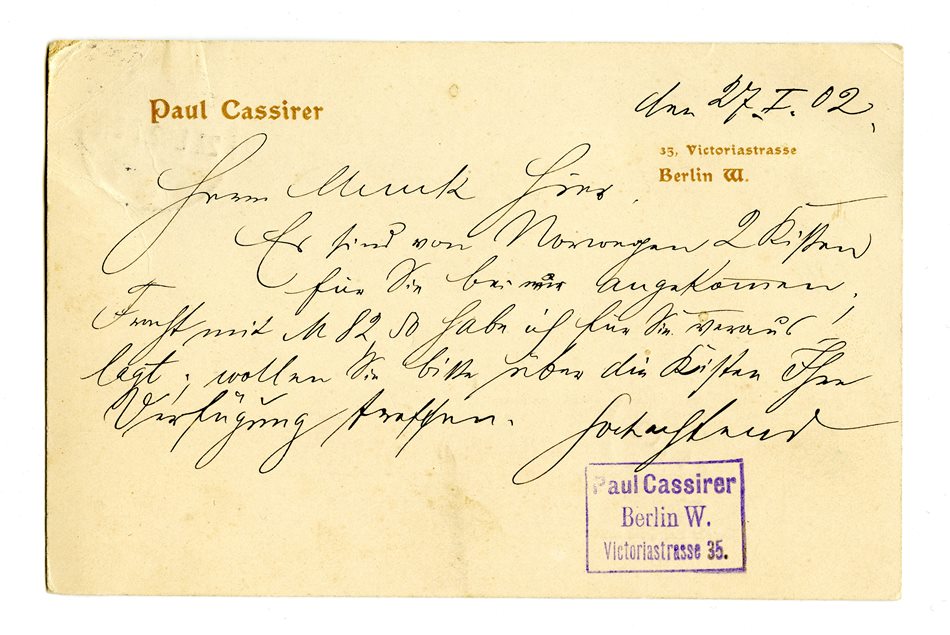 Paul Cassirer
den 27. I. 02.
35, Victoriastrasse
Berlin W.
Herrn Munk Hier.
Es sind von Norwegen 2 Kisten
für Sie bei mir angekommen,
Fracht mit M 82,50 habe ich für Sie veraus
lagt; wollen Sie bitte über die Kisten Ihre
Verfügung treffen.
Hochachtend
Paul Cassirer
Berlin W.
Victoriastrasse 35.